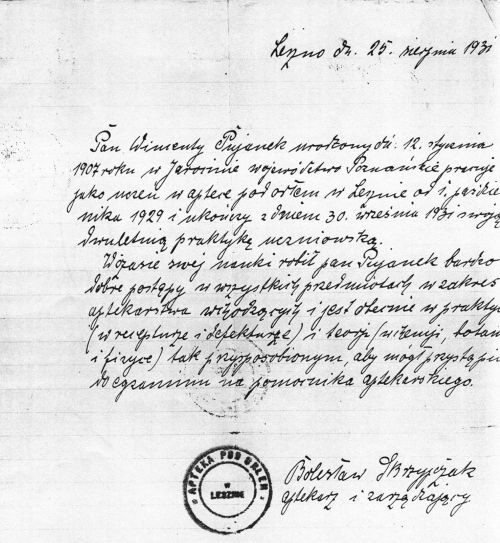 Leszno dn. 25. sierpnia 1931
Pan Wincenty Pujanek urodzony dń. 12. stycznia
1907 roku w Jarocinie województwo Poznańskie pracuje
jako uczeń w aptece pod orłem w Lesznie od 1. paździe
nika 1929 i ukończy z dniem 30. września 1931 swoją
dwuletnią praktykę uczniowską.
W czasie swej nauki robił pan Pujanek bardzo
dobre postępy w wszystkich przedmiotach w zakres
aptekarstwa wchodzących i jest obecnie w praktyce
(w recepturze i defekturze) i teorji (w chemji, botan
i fizyce) tak przysposobionym, aby mógł przystąpić
do egzaminu na pomocnika aptekarskiego.
APTEKA POD ORŁEM
W
LESZNIE
Bolesław Skrzypczak
aptekarz i zarządzający